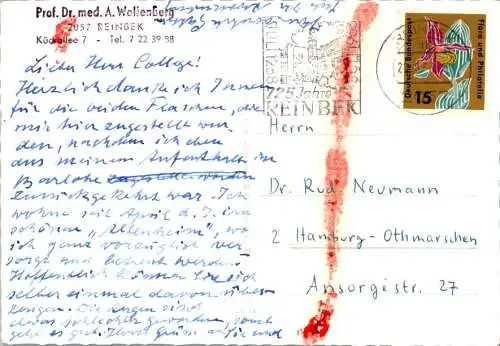 Prof. Dr. med. A. Wollenberg
2057 REINBEK
Kückallee 7 - Tel. 7 22 39 88
Lieber Herr College!
Herzlich danke ich Ihnen
für die beiden Flaschen, die
mir hin zugestellt wur
den, nachdem ich eben
aus meinem Aufenthalt in
zurückgekehrt war. Ich
wohne seit April d. J. im
schönen „Altenheim", wo
ich ganz vorzüglich ver
sorgt und betreut werde.
Hoffentlich können Sie sich
selber einmal davon über
zeugen. Die Augen sind
etwas schlechter geworden, sonst
geht es gut. Herzl. Grüße an Sie und
725 Jahre
REINBEK
Deutsche Bundespost
Flora und Philatelia
15
Herrn
Dr. Rud. Neumann
2 Hamburg-Othmarschen
Ansorgestr. 27